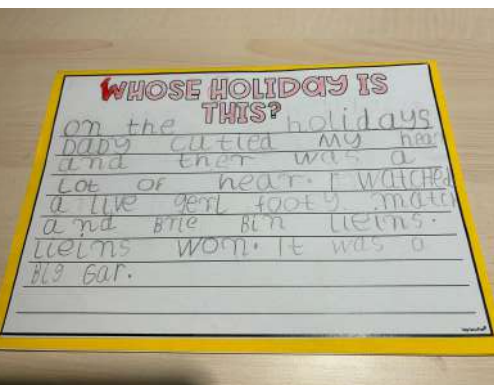 WHOSE HOLIDAY IS
THIS?
on the holidays
DaDy cutied My hear
and ther was a
Lot OF hear. I watcHed
a live gerl footy match
and Brle Bin lieins.
lieins won. It was a
Big Gar.